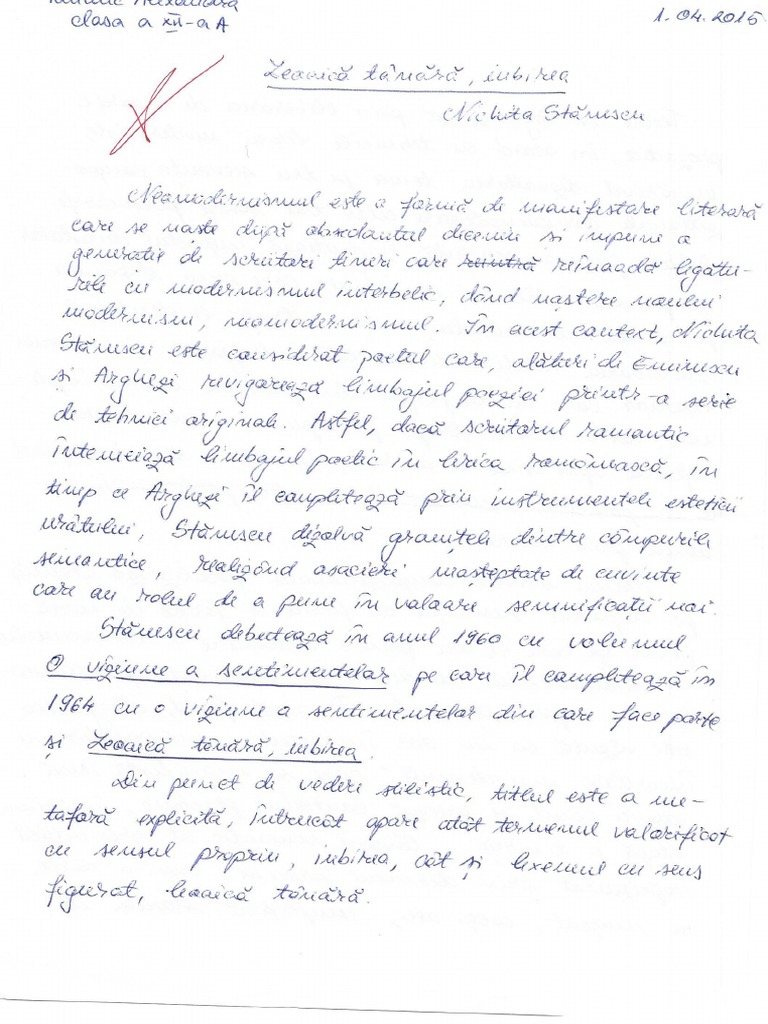 Alexandra
clasa a XII-a A
1.04.2015
Leoaică tânără, iubirea
Nichita Stănescu
Neomodernismul este o formă de manifestare literară
care se naște după obsedantul deceniu și impune o
generație de scriitori tineri care reintră reînnoadă legătu-
rile cu modernismul interbelic, dând naștere noului
modernism, neomodernismul. În acest context, Nichita
Stănescu este considerat poetul care, alături de Eminescu
și Arghezi revigorează limbajul poeziei printr-o serie
de tehnici originale. Astfel, dacă scriitorul romantic
întemeiază limbajul poetic în lirica românească, în
timp ce Arghezi îl completează prin instrumentele esteticii
urâtului, Stănescu dizolvă granițele dintre câmpurile
semantice, realizând asocieri neașteptate de cuvinte
care au rolul de a pune în valoare semnificații noi.
Stănescu debutează în anul 1960 cu volumul
O viziune a sentimentelor pe care îl completează în
1964 cu o viziune a sentimentelor din care face parte
și Leoaică tânără, iubirea.
Din punct de vedere stilistic, titlul este o me-
taforă explicită, întrucât apare atât termenul valorificat
cu sensul propriu, iubirea, cât și lexemul cu sens
figurat, leoaică tânără.